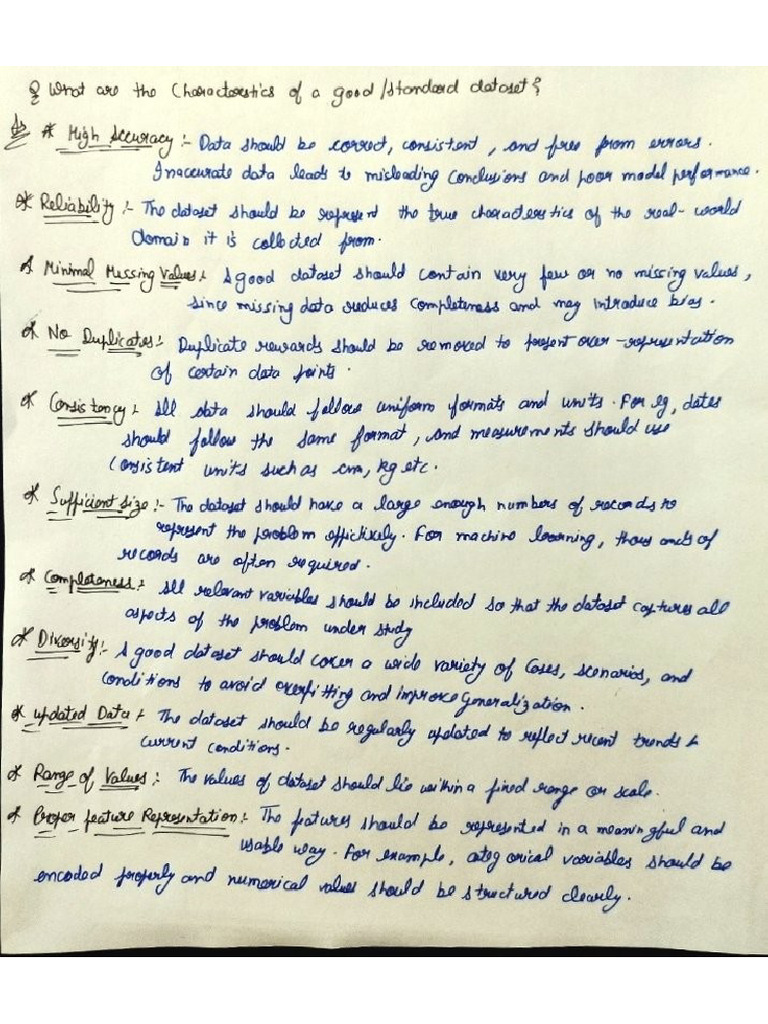 Q What are the Characterstics of a good/standard dataset?
Ans * High Accuracy :- Data should be correct, consistent, and free from errors.
Inaccurate data leads to misleading conclusions and poor model performance.
* Reliability :- The dataset should be represent the true characteristics of the real-world
domain it is collected from.
* Minimal Missing Values :- A good dataset should contain very few or no missing values,
since missing data reduces completeness and may introduce bias.
* No Duplicates :- Duplicate rewards should be removed to present over-representation
of certain data points.
* Consistency :- All data should follow uniform formats and units. For eg, dates
should follow the same format, and measurements should use
consistent units such as cm, kg etc.
* Sufficient size :- The dataset should have a large enough numbers of records to
represent the problem effictively. For machine learning, thousands of
records are often required.
* Completeness :- All relevant variables should be included so that the dataset captures all
aspects of the problem under study
* Diversity :- A good dataset should cover a wide variety of Cases, scenarios, and
conditions to avoid overfitting and improve generalization.
* updated Data :- The dataset should be regularly updated to reflect recent trends &
current conditions.
* Range of Values :- The values of dataset should lie within a fixed range or scale.
* Proper feature Representation :- The features should be represented in a meaningful and
usable way. For example, categorical variables should be
encoded properly and numerical values should be structured clearly.